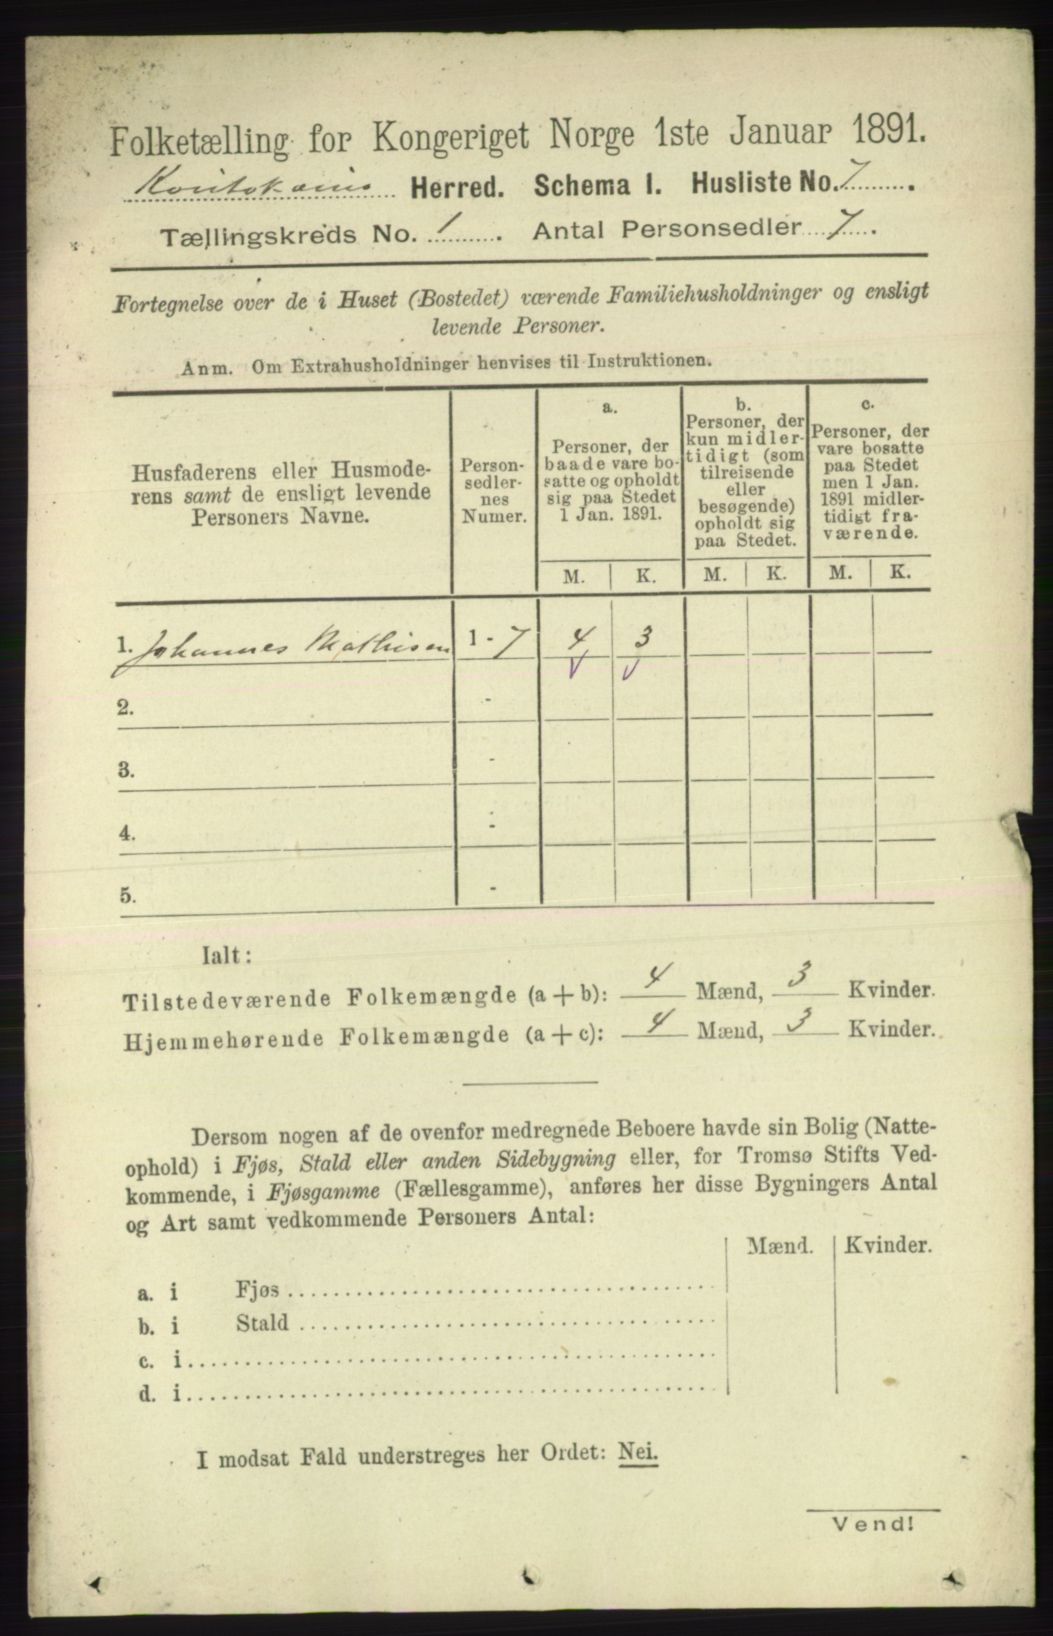 Folketælling for Kongeriget Norge 1ste Januar 1891.
Koutokæino Herred. Schema I. Husliste No. 7.
Tællingskreds No. 1. Antal Personsedler 7.
Fortegnelse over de i Huset (Bostedet) værende Familiehusholdninger og ensligt
levende Personer.
Anm. Om Extrahusholdninger henvises til Instruktionen.
Husfaderens eller Husmode-
rens samt de ensligt levende
Personers Navne.
Person-
sedler-
nes
Numer.
a.
Personer, der
baade vare bo-
satte og opholdt
sig paa Stedet
1 Jan. 1891.
b.
Personer, der
kun midler-
tidigt (som
tilreisende
eller
besøgende)
opholdt sig
paa Stedet.
c.
Personer, der
vare bosatte
paa Stedet
men 1 Jan.
1891 midler-
tidigt fra-
værende.
M. K. M. K. M. K.
1. Johannes Mathisen 1 - 7 4 3
2. -
3. -
4. -
5. -
Ialt:
Tilstedeværende Folkemængde (a + b): 4 Mænd, 3 Kvinder.
Hjemmehørende Folkemængde (a + c): 4 Mænd, 3 Kvinder.
Dersom nogen af de ovenfor medregnede Beboere havde sin Bolig (Natte-
ophold) i Fjøs, Stald eller anden Sidebygning eller, for Tromsø Stifts Ved-
kommende, i Fjøsgamme (Fællesgamme), anføres her disse Bygningers Antal
og Art samt vedkommende Personers Antal:
Mænd. Kvinder.
a. i Fjøs
b. i Stald
c. i
d. i
I modsat Fald understreges her Ordet: Nei.
Vend!